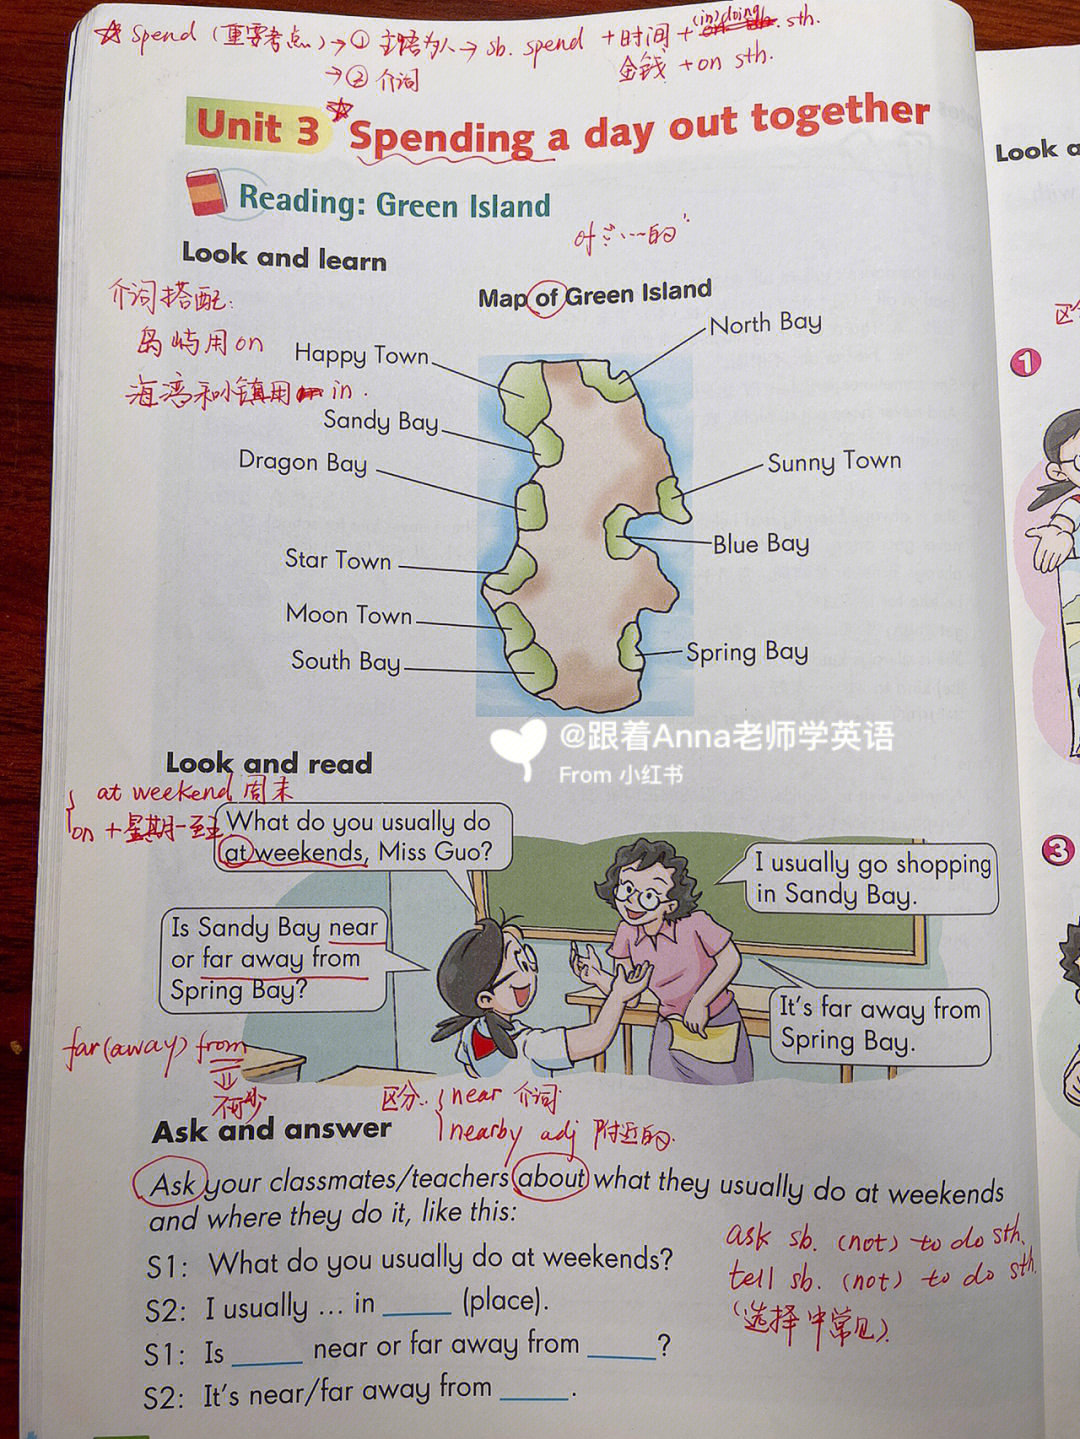 ☆ spend (重要考点) → ① 主语为人 → sb. spend + 时间 + (in) doing sth.
金钱 + on sth.
→ ② 介词
Unit 3 Spending a day out together
Reading: Green Island
Look a
of: "……的"
Look and learn
介词搭配:
Map of Green Island
岛屿用on
海湾和小镇用 in.
North Bay
Happy Town
Sandy Bay
Dragon Bay
Sunny Town
Blue Bay
Star Town
Moon Town
South Bay
Spring Bay
1
@跟着Anna老师学英语
From 小红书
Look and read
at weekend 周末
on + 星期一至
What do you usually do
at weekends, Miss Guo?
I usually go shopping
in Sandy Bay.
3
Is Sandy Bay near
or far away from
Spring Bay?
It's far away from
Spring Bay.
far (away) from
不可少
区分: near 介词
nearby adj 附近的.
Ask and answer
Ask your classmates/teachers about what they usually do at weekends
and where they do it, like this:
ask sb. (not) to do sth.
tell sb. (not) to do sth.
(选择中常见).
S1: What do you usually do at weekends?
S2: I usually ... in _____ (place).
S1: Is _____ near or far away from _____?
S2: It's near/far away from _____.